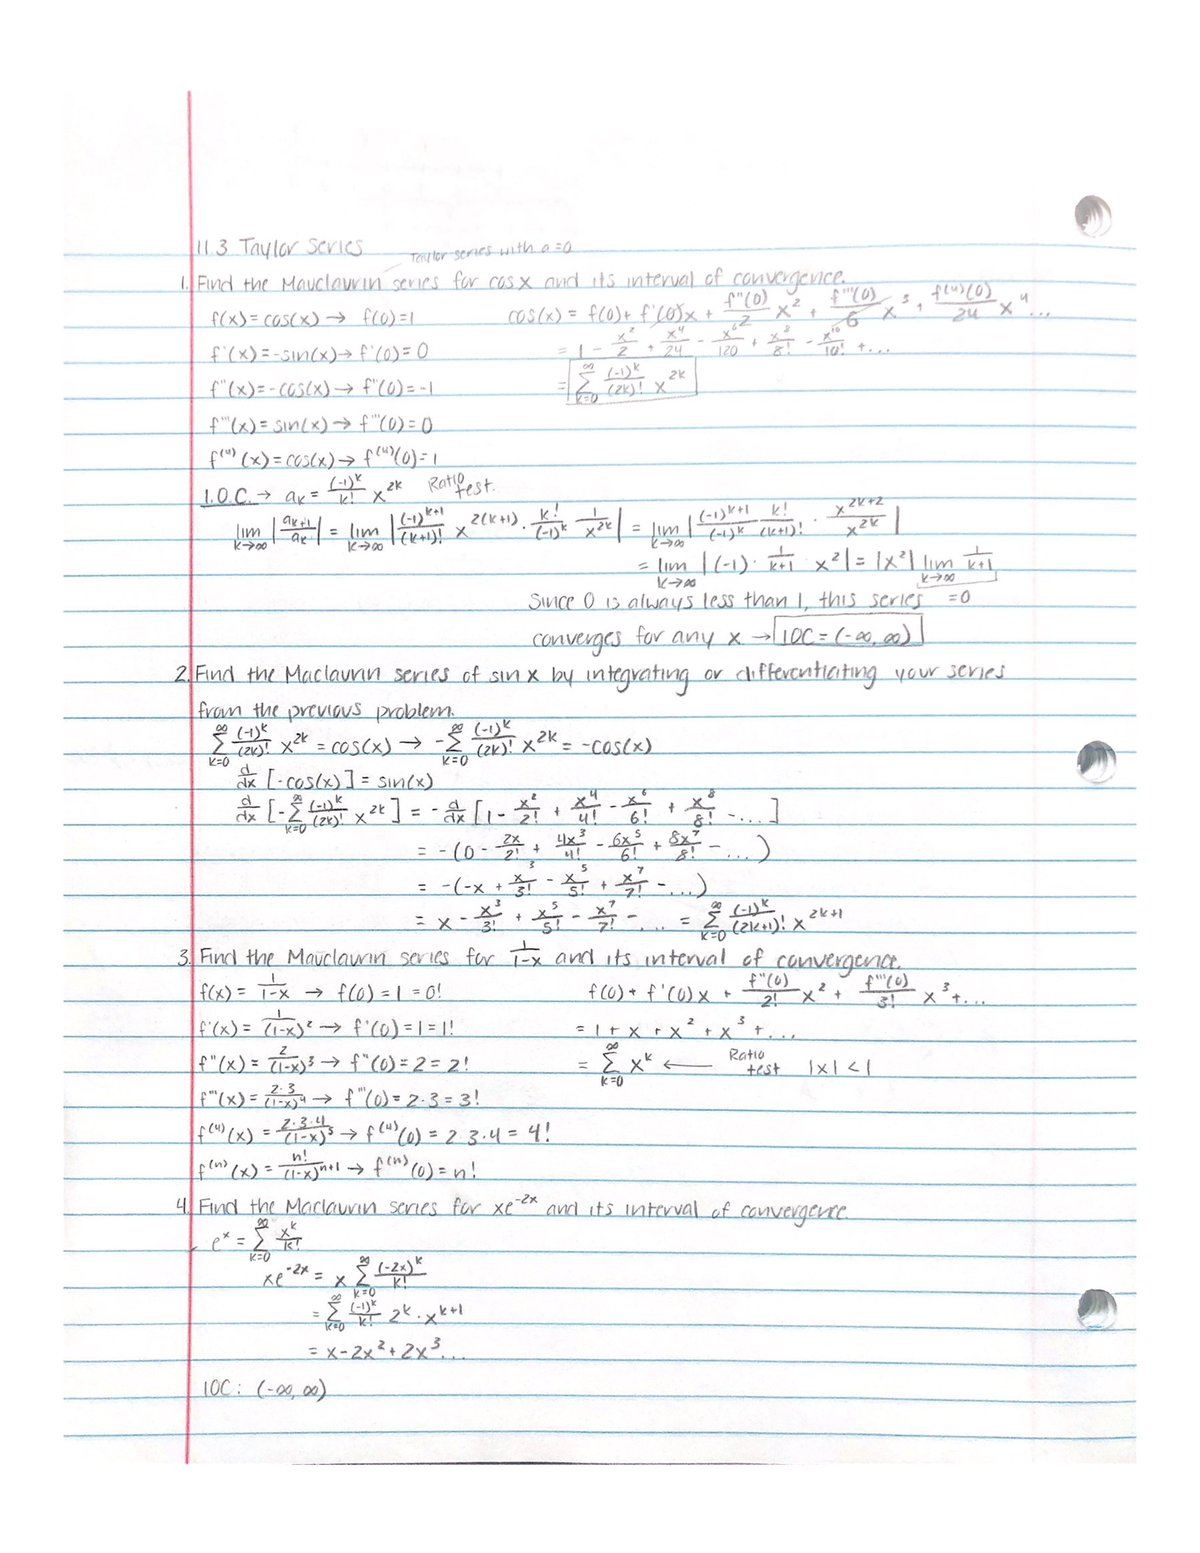 11.3 Taylor Series
Taylor series with a=0
1. Find the Mauclaurin series for cos x and its interval of convergence.
f(x) = cos(x) → f(0) = 1
cos(x) = f(0) + f'(0)x + f''(0)/2 x² + f'''(0)/6 x³ + f⁽⁴⁾(0)/24 x⁴ ...
f'(x) = -sin(x) → f'(0) = 0
= 1 - x²/2 + x⁴/24 - x⁶/120 + x⁸/8! - x¹⁰/10! + ...
f''(x) = -cos(x) → f''(0) = -1
= ∞ Σ k=0 (-1)ᵏ/(2k)! x²ᵏ
f'''(x) = sin(x) → f'''(0) = 0
f⁽⁴⁾(x) = cos(x) → f⁽⁴⁾(0) = 1
I.O.C. → aₖ = (-1)ᵏ/k! x²ᵏ Ratio test.
lim k→∞ |aₖ₊₁/aₖ| = lim k→∞ |(-1)ᵏ⁺¹/(k+1)! x²⁽ᵏ⁺¹⁾ · k!/(-1)ᵏ · 1/x²ᵏ| = lim k→∞ |(-1)ᵏ⁺¹/(-1)ᵏ k!/(k+1)! · x²ᵏ⁺²/x²ᵏ|
= lim k→∞ |(-1) · 1/k+1 · x²| = |x²| lim k→∞ 1/k+1
Since 0 is always less than 1, this series =0
converges for any x → IOC = (-∞, ∞)
2. Find the Maclaurin series of sin x by integrating or differentiating your series
from the previous problem.
∞ Σ k=0 (-1)ᵏ/(2k)! x²ᵏ = cos(x) → - ∞ Σ k=0 (-1)ᵏ/(2k)! x²ᵏ = -cos(x)
d/dx [-cos(x)] = sin(x)
d/dx [- ∞ Σ k=0 (-1)ᵏ/(2k)! x²ᵏ] = - d/dx [1 - x²/2! + x⁴/4! - x⁶/6! + x⁸/8! - ...]
= -(0 - 2x/2! + 4x³/4! - 6x⁵/6! + 8x⁷/8! - ...)
= -(-x + x³/3! - x⁵/5! + x⁷/7! - ...)
= x - x³/3! + x⁵/5! - x⁷/7! - ... = ∞ Σ k=0 (-1)ᵏ/(2k+1)! x²ᵏ⁺¹
3. Find the Mauclaurin series for 1/1-x and its interval of convergence.
f(x) = 1/1-x → f(0) = 1 = 0!
f(0) + f'(0)x + f''(0)/2! x² + f'''(0)/3! x³ + ...
f'(x) = 1/(1-x)² → f'(0) = 1 = 1!
= 1 + x + x² + x³ + ...
f''(x) = 2/(1-x)³ → f''(0) = 2 = 2!
= ∞ Σ k=0 xᵏ ← Ratio test |x| < 1
f'''(x) = 2·3/(1-x)⁴ → f'''(0) = 2·3 = 3!
f⁽⁴⁾(x) = 2·3·4/(1-x)⁵ → f⁽⁴⁾(0) = 2·3·4 = 4!
f⁽ⁿ⁾(x) = n!/(1-x)ⁿ⁺¹ → f⁽ⁿ⁾(0) = n!
4. Find the Maclaurin series for xe⁻²ˣ and its interval of convergence.
eˣ = ∞ Σ k=0 xᵏ/k!
xe⁻²ˣ = x ∞ Σ k=0 (-2x)ᵏ/k!
= ∞ Σ k=0 (-1)ᵏ/k! 2ᵏ · xᵏ⁺¹
= x - 2x² + 2x³...
IOC: (-∞, ∞)